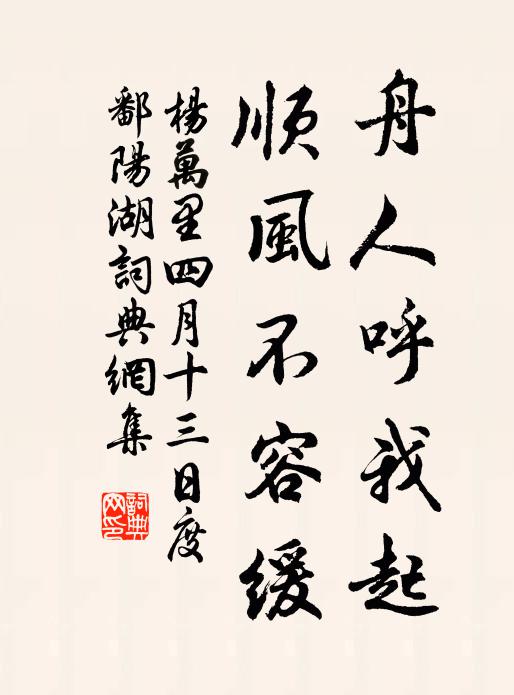 舟人呼我起
順風不容緩
楊萬里四月十三日度
鄱陽湖詞典網集
詞典
网印